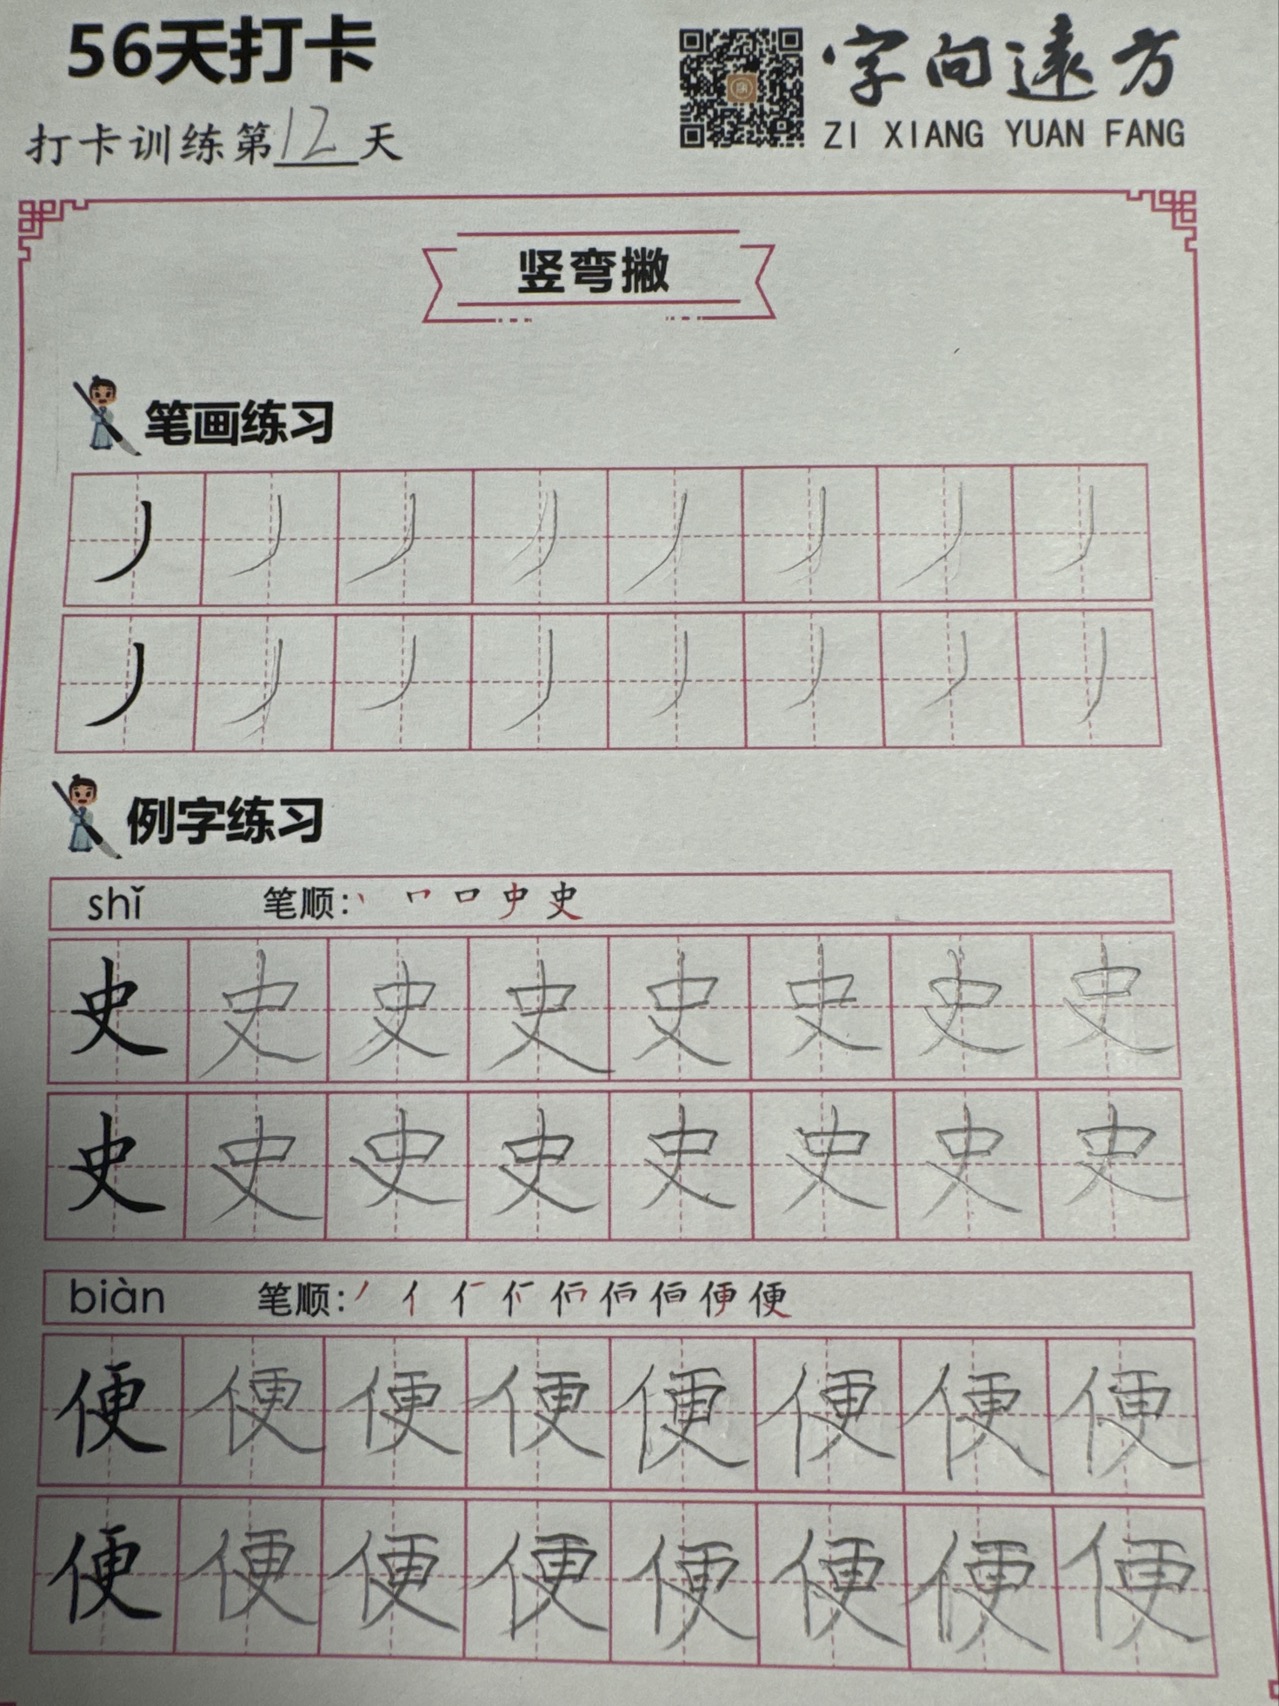 56天打卡
字向遠方
ZI XIANG YUAN FANG
打卡训练第12天
竖弯撇
笔画练习
丿 丿 丿 丿 丿 丿 丿 丿
丿 丿 丿 丿 丿 丿 丿 丿
例字练习
shǐ 笔顺:丶 𠃍 口 史 史
史 史 史 史 史 史 史 史
史 史 史 史 史 史 史 史
biàn 笔顺:丿 亻 便 便
便 便 便 便 便 便 便 便
便 便 便 便 便 便 便 便